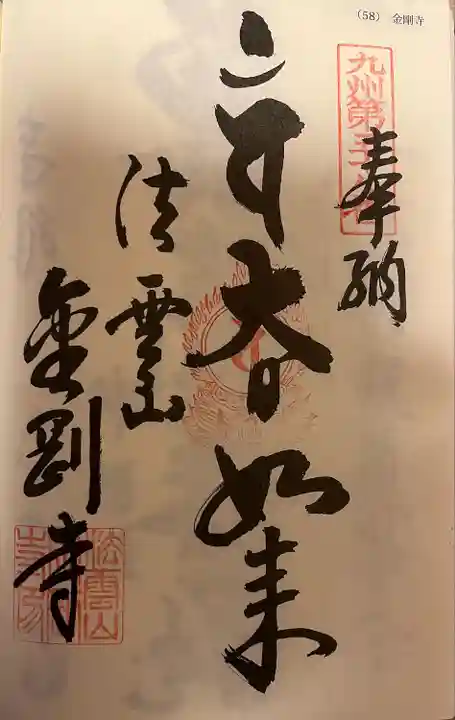 (58) 金剛寺
九州第五十八
奉納
大日如来
法雲山
金剛寺
法雲山